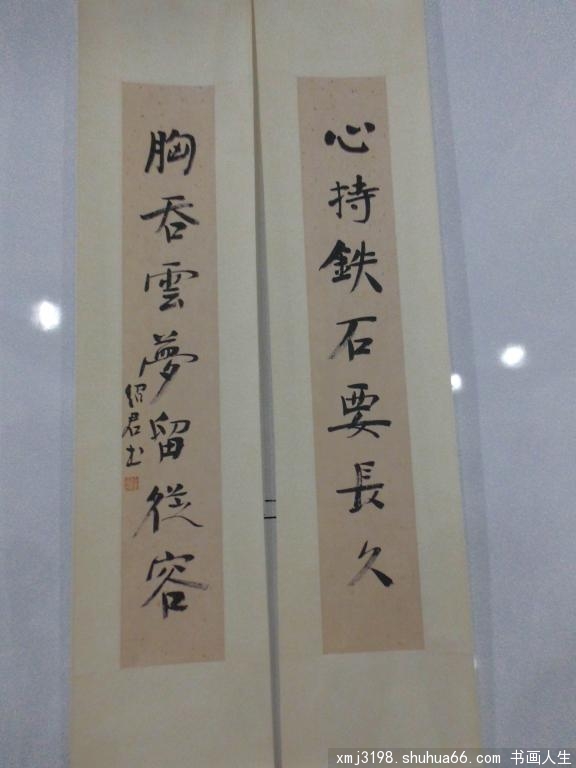 心持鉄石要長久
胸吞雲夢留從容
绍君书
xmj3198.shuhua66.com 书画人生